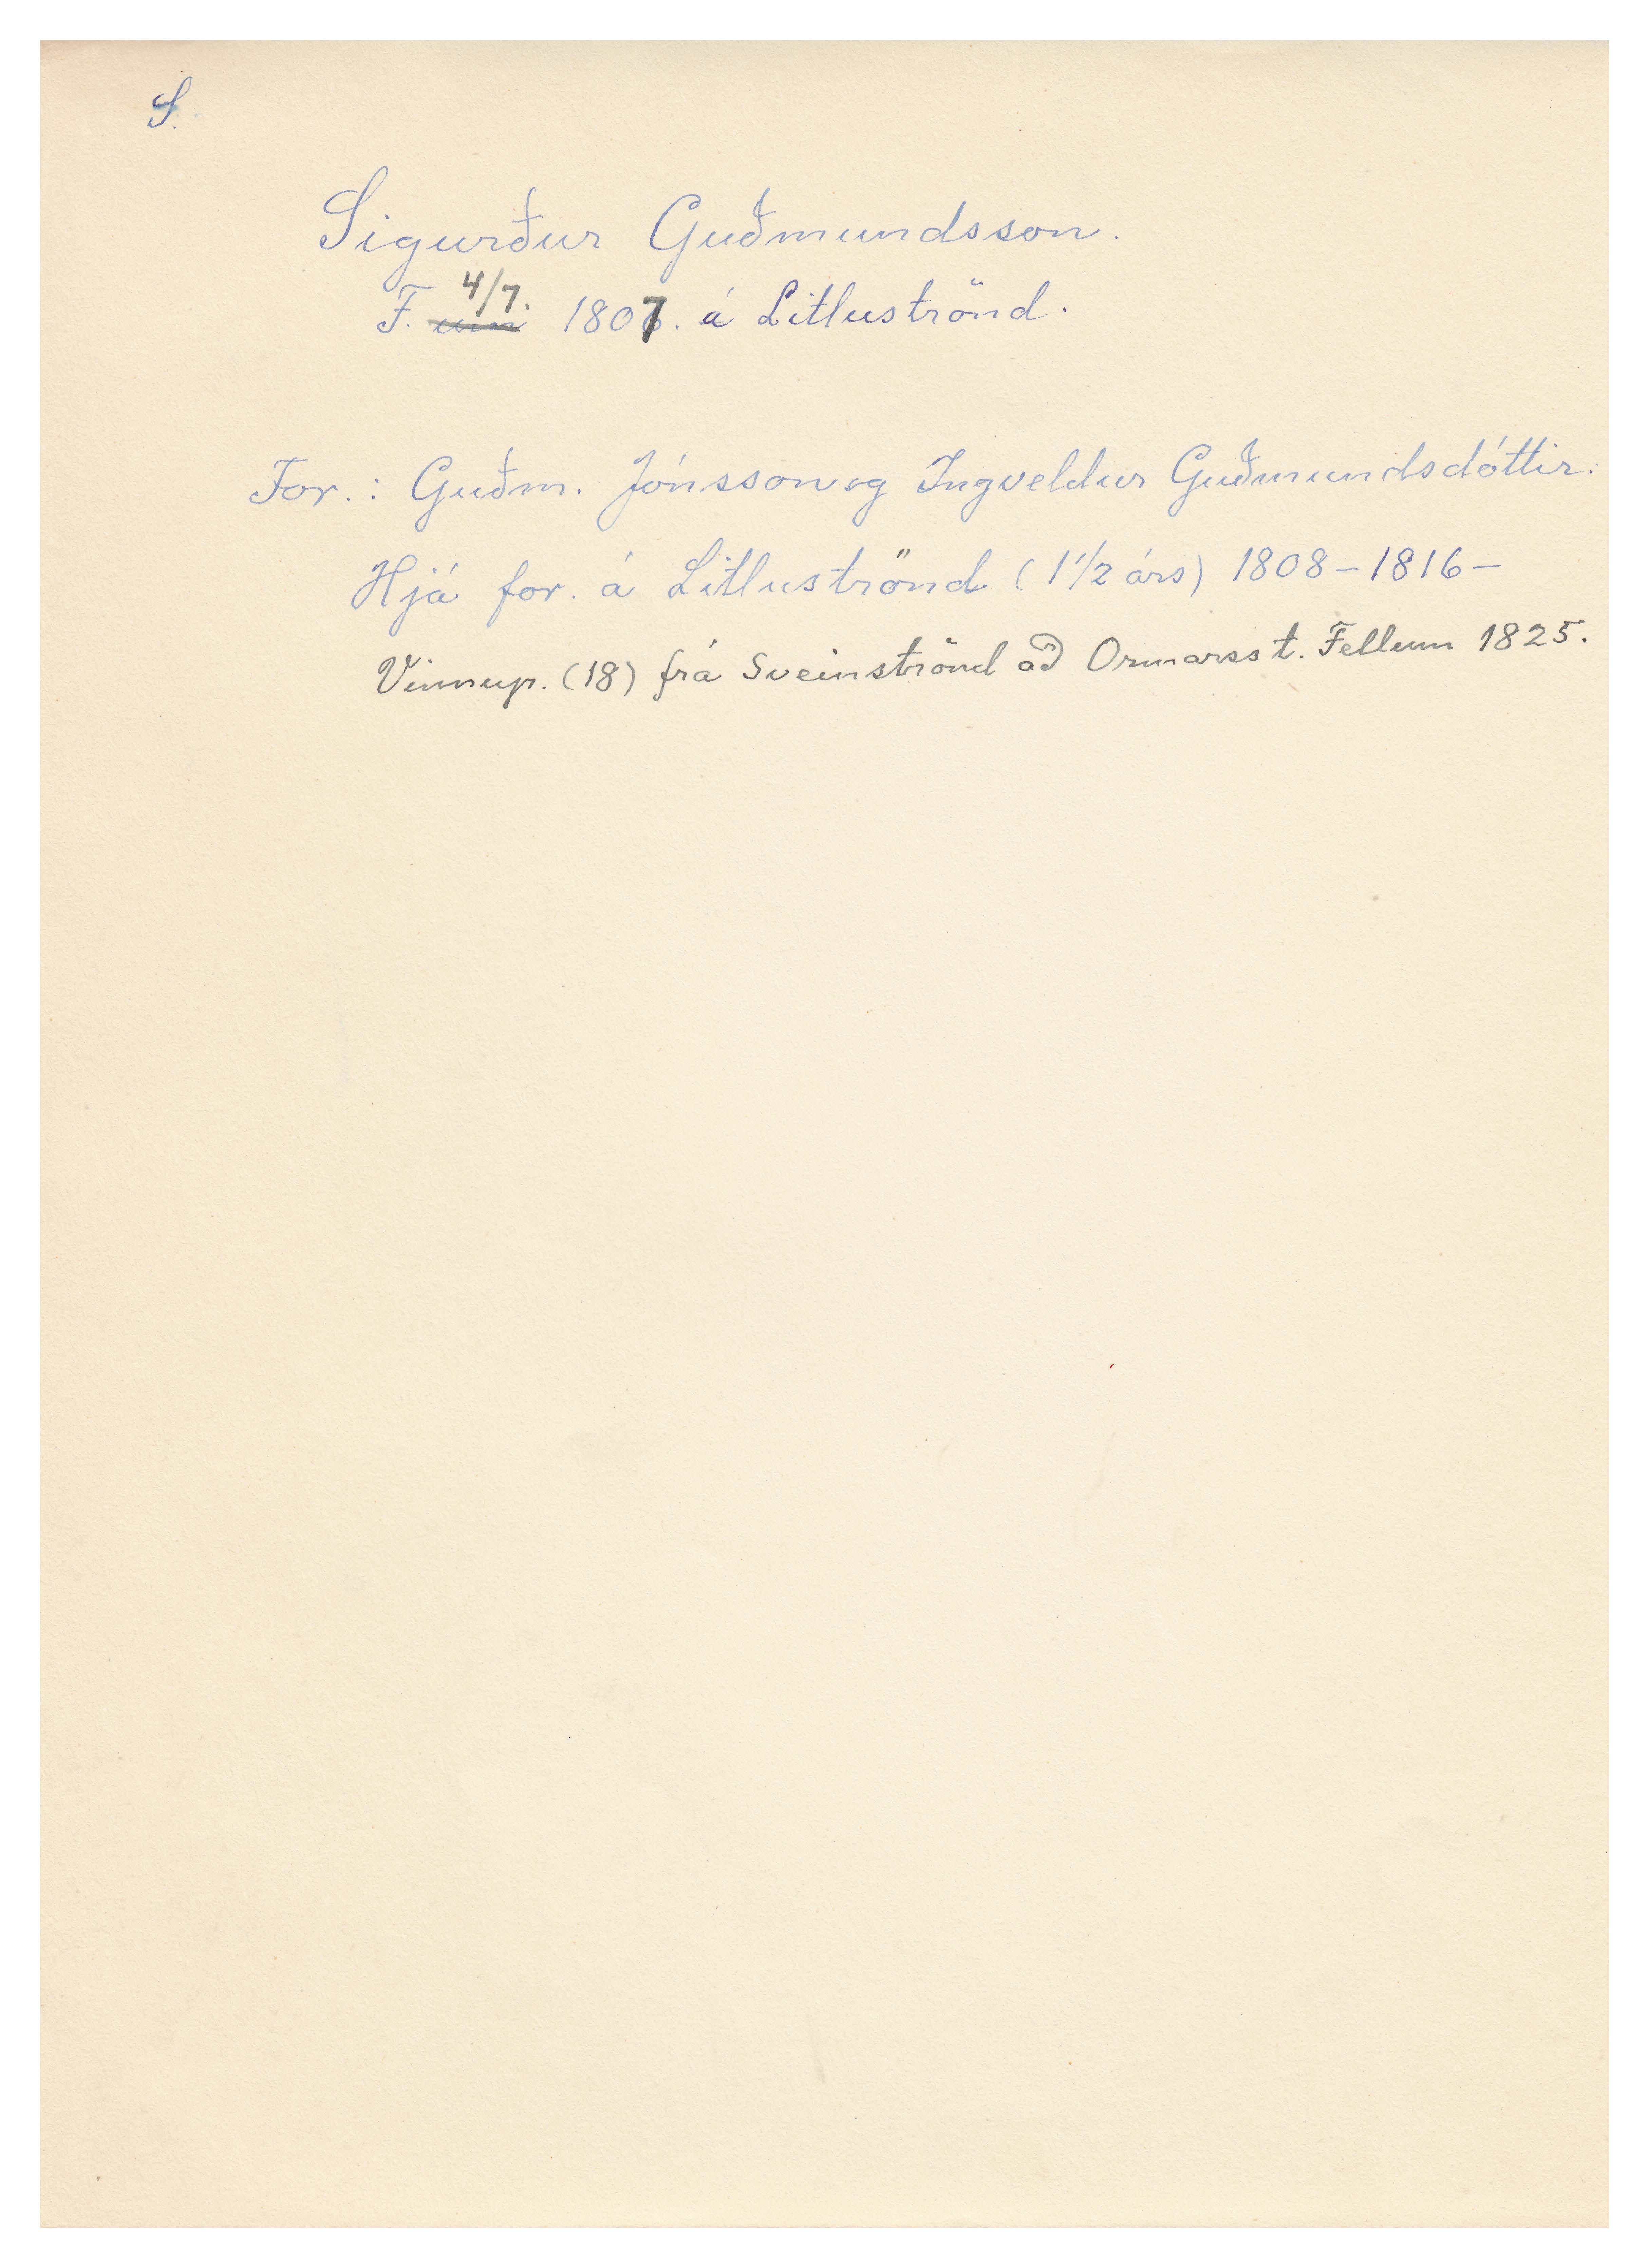 S.
Sigurður Guðmundsson.
F. um 4/7. 1807. á Litluströnd.
For.: Guðm. Jónsson og Ingveldur Guðmundsdóttir.
Hjá for. á Litluströnd (1 1/2 árs) 1808-1816-
Vinnup. (18) frá Sveinströnd að Ormarsst. Fellum 1825.